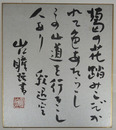 葛の花踏みしだか
れて色あたらし
この山道を行きし
人あり 迢空